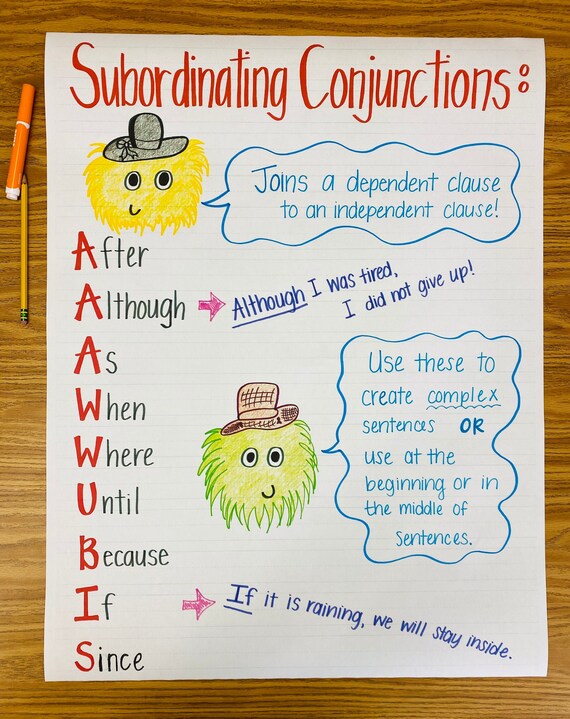 Subordinating Conjunctions:
Joins a dependent clause
to an independent clause!
After
Although
Although I was tired,
I did not give up!
As
When
Where
Until
Because
If
Since
Use these to
create complex
sentences OR
use at the
beginning or in
the middle of
sentences.
If it is raining, we will stay inside.